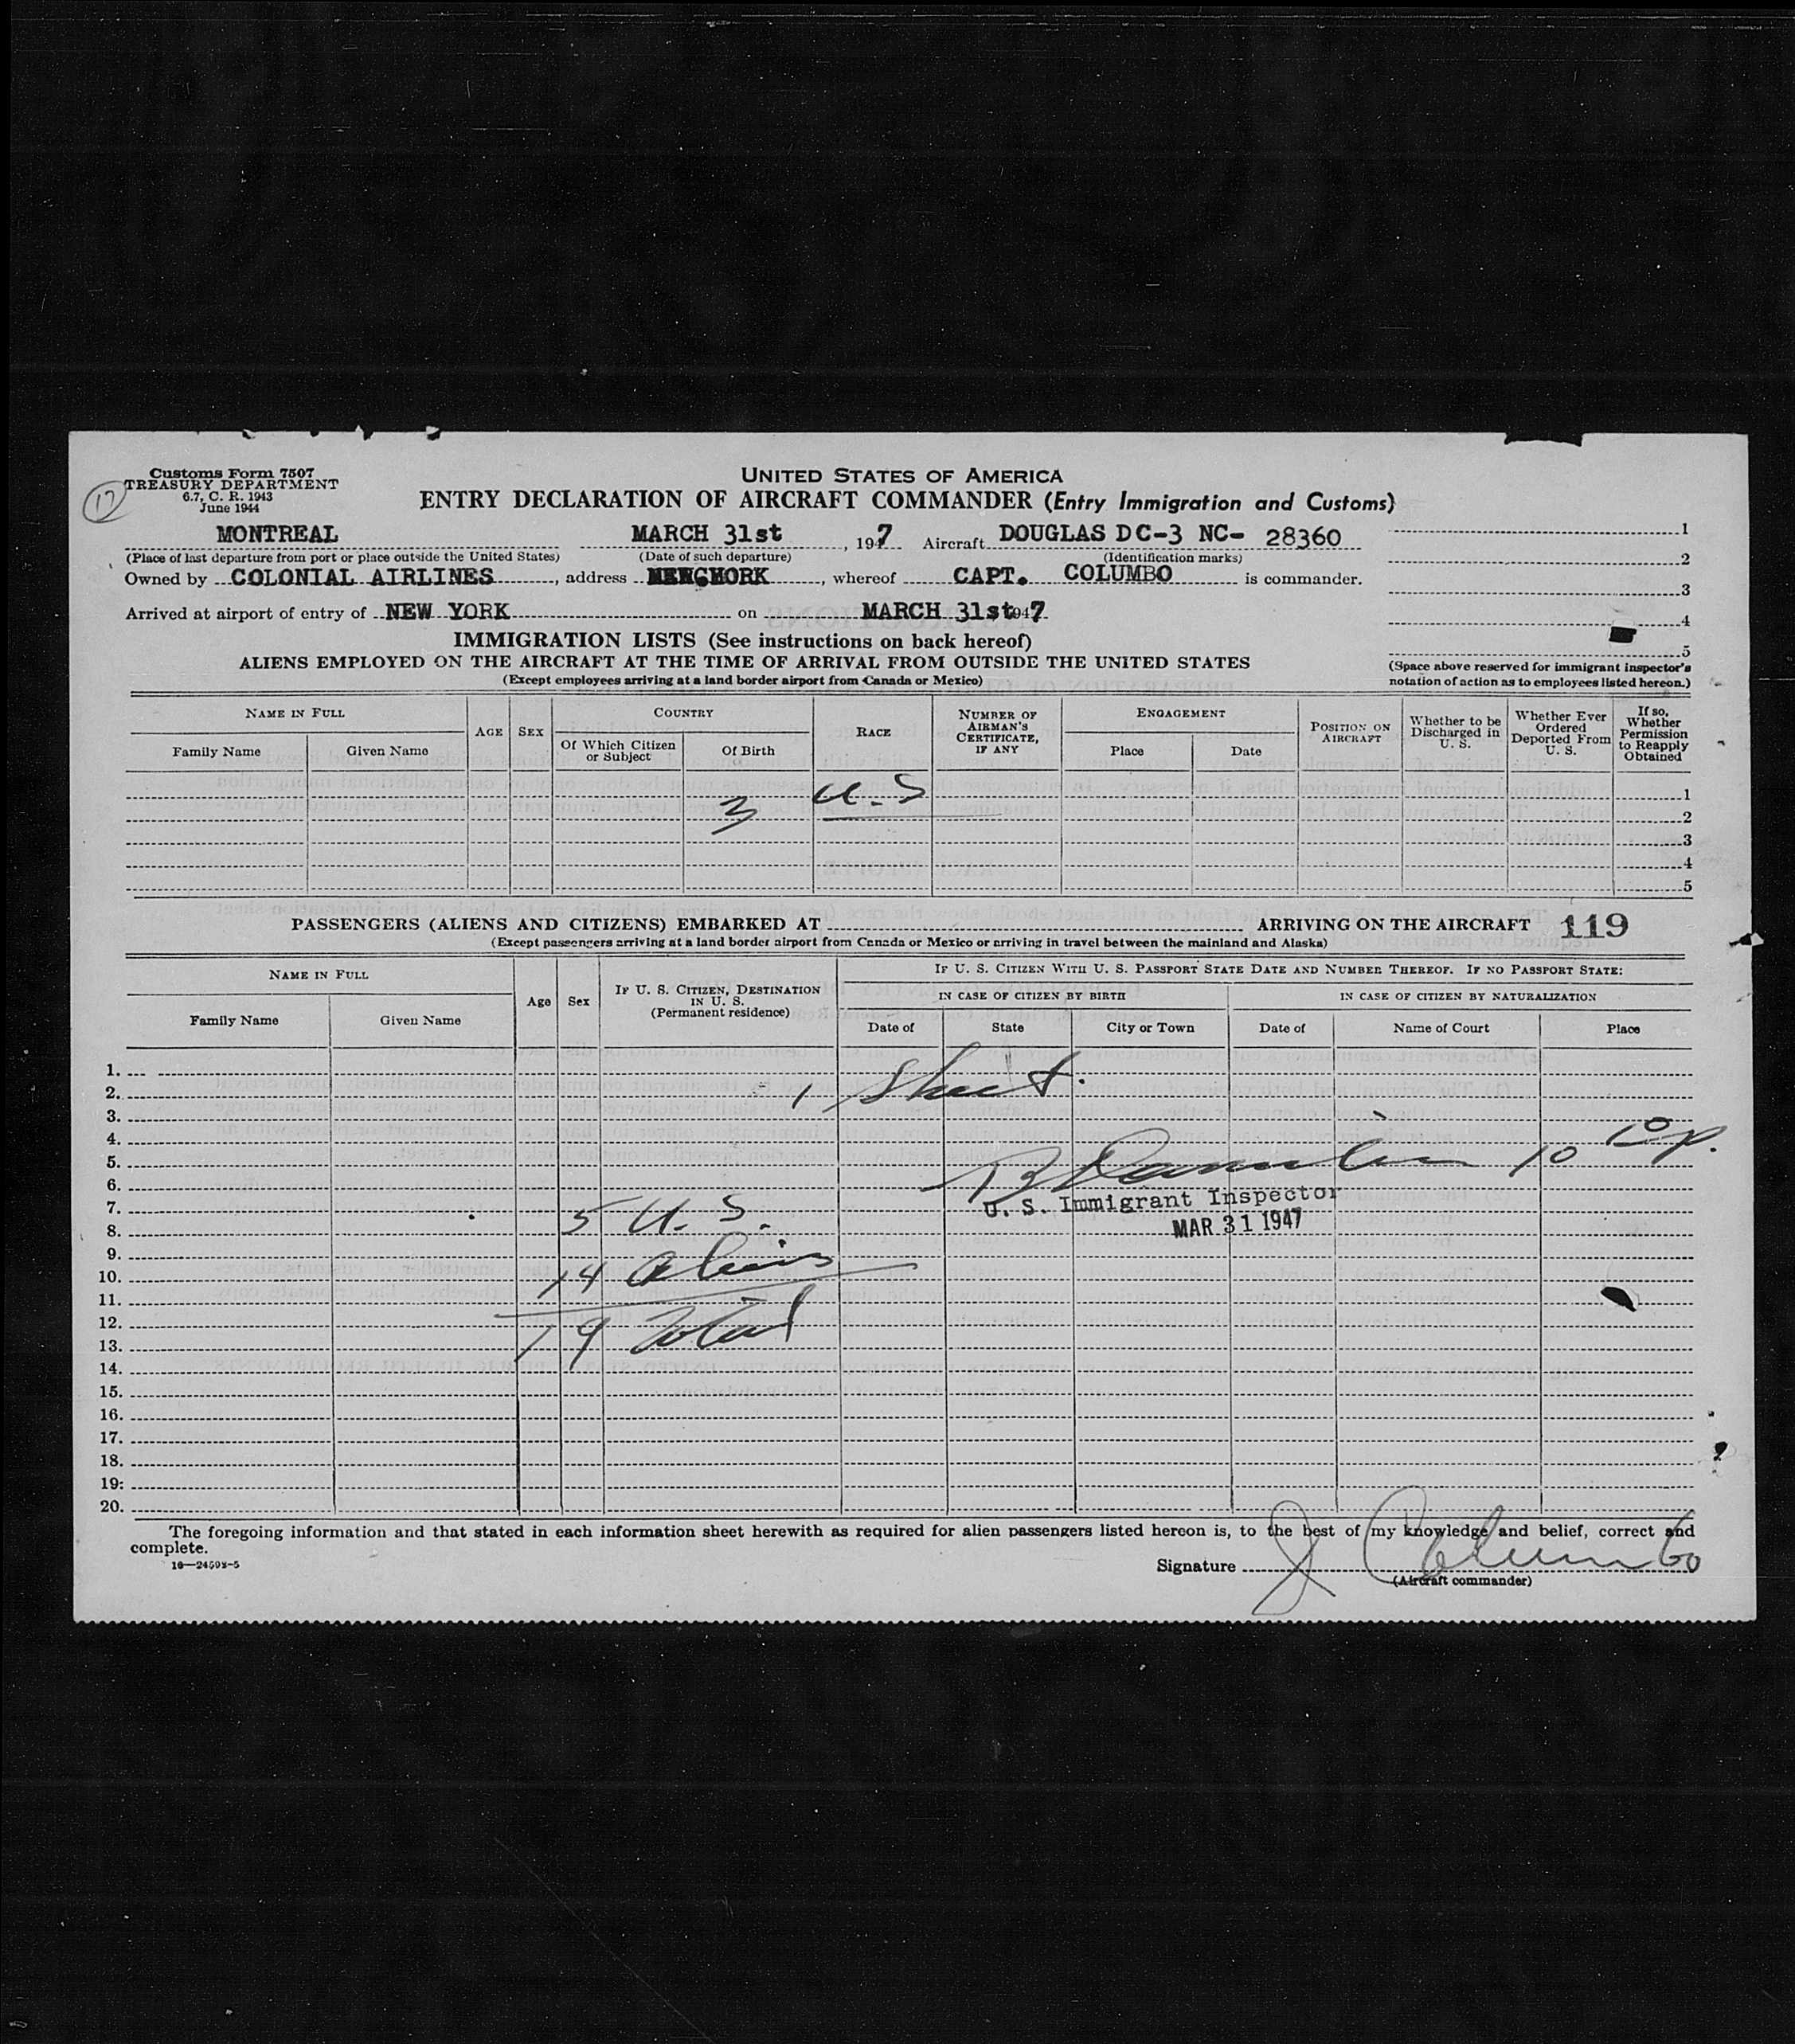 Customs Form 7507
TREASURY DEPARTMENT
6.7, C. R. 1943
June 1944
17
UNITED STATES OF AMERICA
ENTRY DECLARATION OF AIRCRAFT COMMANDER (Entry Immigration and Customs)
MONTREAL MARCH 31st, 1947 Aircraft DOUGLAS DC-3 NC- 28360
(Place of last departure from port or place outside the United States) (Date of such departure) (Identification marks)
Owned by COLONIAL AIRLINES, address, whereof CAPT. COLUMBO is commander.
Arrived at airport of entry of NEW YORK on MARCH 31st 1947
1
2
3
4
5
(Space above reserved for immigrant inspector's
notation of action as to employees listed hereon.)
IMMIGRATION LISTS (See instructions on back hereof)
ALIENS EMPLOYED ON THE AIRCRAFT AT THE TIME OF ARRIVAL FROM OUTSIDE THE UNITED STATES
(Except employees arriving at a land border airport from Canada or Mexico)
NAME IN FULL
Family Name Given Name
AGE SEX
COUNTRY
Of Which Citizen or Subject Of Birth
RACE
NUMBER OF AIRMAN'S CERTIFICATE, IF ANY
ENGAGEMENT
Place Date
POSITION ON AIRCRAFT
Whether to be Discharged in U. S.
Whether Ever Ordered Deported From U. S.
If so, Whether Permission to Reapply Obtained
3 U.S
1
2
3
4
5
PASSENGERS (ALIENS AND CITIZENS) EMBARKED AT ARRIVING ON THE AIRCRAFT 119
(Except passengers arriving at a land border airport from Canada or Mexico or arriving in travel between the mainland and Alaska)
NAME IN FULL
Family Name Given Name
Age Sex
IF U. S. CITIZEN, DESTINATION IN U. S. (Permanent residence)
IF U. S. CITIZEN WITH U. S. PASSPORT STATE DATE AND NUMBER THEREOF. IF NO PASSPORT STATE:
IN CASE OF CITIZEN BY BIRTH IN CASE OF CITIZEN BY NATURALIZATION
Date of State City or Town Date of Name of Court Place
1.
2. 1 Sheet.
3.
4.
5. 10 10 p.
6.
U. S. Immigrant Inspector
7. 5 U. S.
MAR 31 1947
8.
9.
10. 14 aliens
11.
12.
13. 19 Total
14.
15.
16.
17.
18.
19.
20.
The foregoing information and that stated in each information sheet herewith as required for alien passengers listed hereon is, to the best of my knowledge and belief, correct and
complete.
16—24598-5
Signature J Columbo
(Aircraft commander)